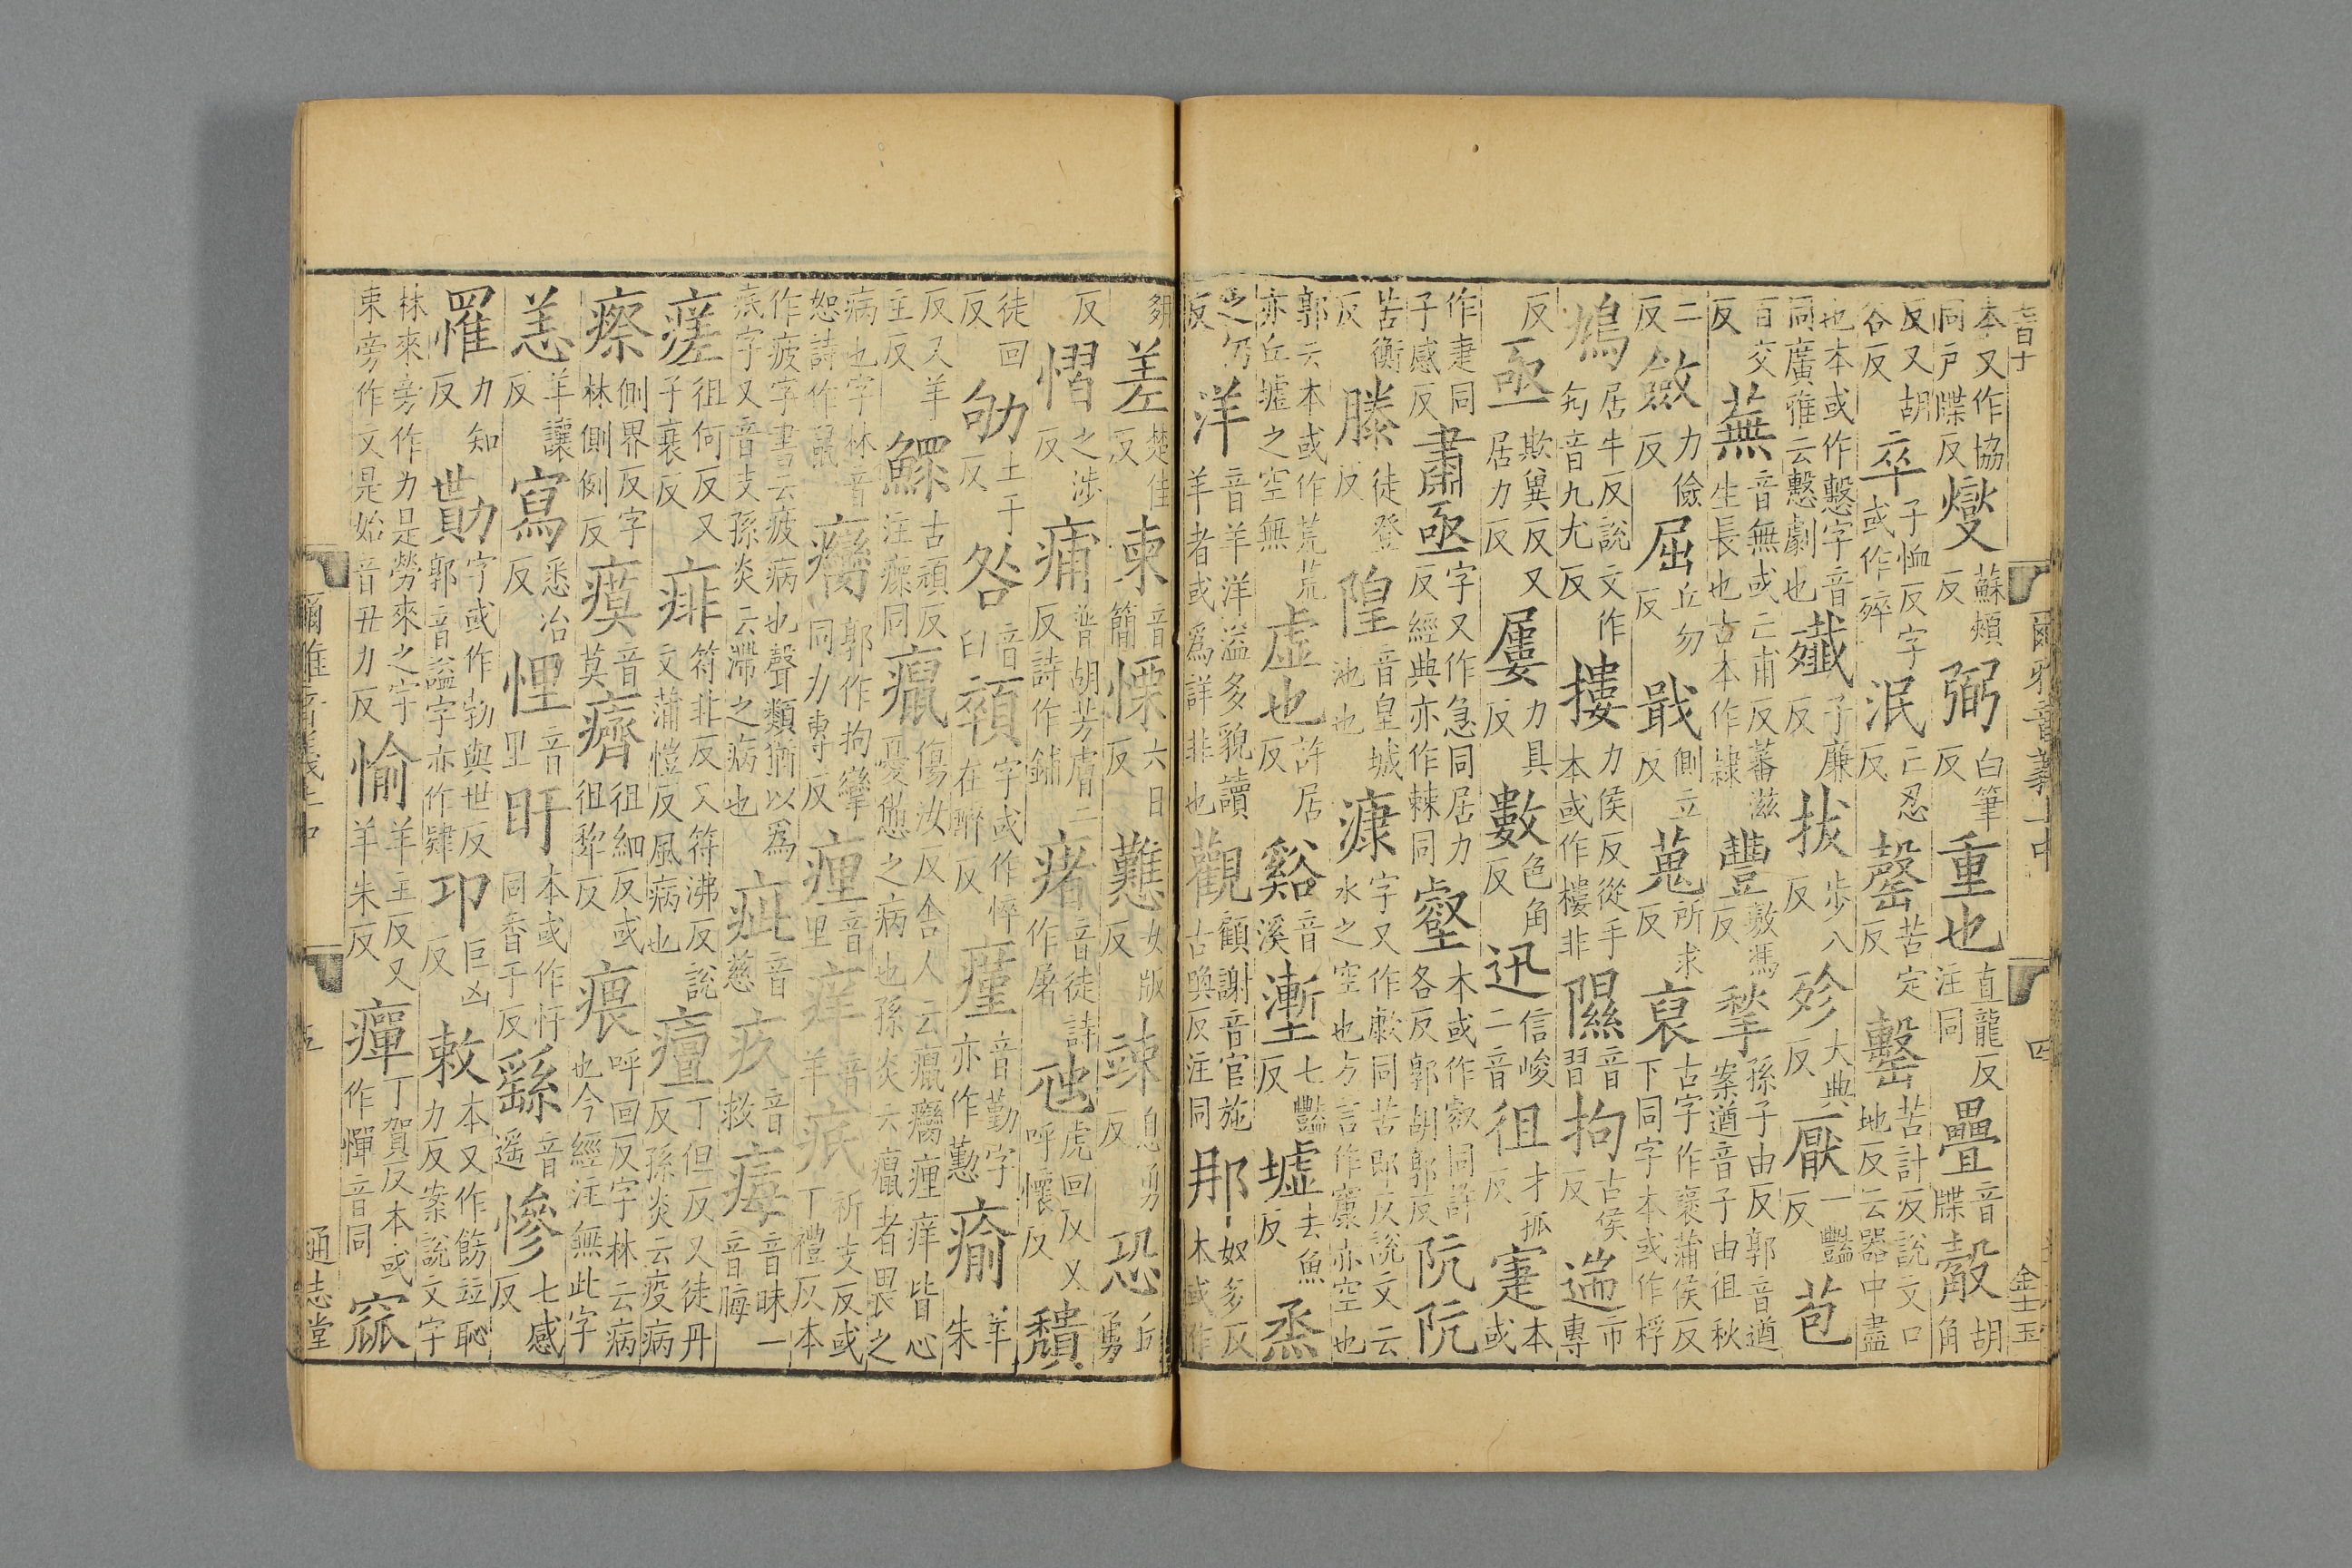 七百十 爾雅音義上中 四 金士玉
本又作協同戶牒反燮蘇頰反弼白筆反重也直龍反注同疊音牒觳胡角
反又胡谷反卒子恤反字或作殩泯亡忍反罄苦定反罊苦計反說文口地反云器中盡
也本或作字音同廣雅云劇也殲子廉反拔步八反殄大典反厭一豔反苞
百交反蕪音無或亡甫反蕃滋生長也古本作隸豐敷馮反揫孫子由反郭音遒案遒音子由徂秋
二反斂力儉反屈丘勿反戢側立反蒐所求反裒古字作褒蒲侯反下同字本或作桴
鳩居牛反說文作勼音九尤反摟力侯反從手本或作樓非隰音習拘古侯反遄市專
反亟欺冀反又居力反屢力具反數色角反迅信峻二音徂才孤反寁本或
作疌同子感反肅亟字又作急同居力反經典亦作棘同壑本或作叡同許各反郭胡郭反阬阬
苦衡反滕徒登反隍音皇城池也漮字又作歑同苦郎反說文云水之空也方言作㝩亦空也
郭云本或作荒荒亦丘墟之空無虛也許居反谿音溪塹七豔反墟去魚反烝
之仍反洋音羊洋溢多貌讀羊者或爲詳非也觀顧謝音官施古喚反注同那奴多反本或作
差楚佳反悚音簡慄六日反戁女版反竦息勇反恐丘勇
反慴之涉反痡普胡芳膚二反詩作鋪瘏音徒詩作屠虺虎回反又呼懷反頹
徒回反劬土于反咎音臼顇字或作悴在醉反瘽音勤字亦作懃瘉羊朱
反又羊主反鰥古頑反注瘝同癙傷汝反舍人云癙癵㾖痒皆心憂憊之病也孫炎云癙者畏之
病也字林音恕詩作鼠癵郭作拘攣同力專反㾖音里痒音羊疧祈支反或丁禮反本
作疲字書云疲病也聲類猶以爲疷字又音支孫炎云滯之病也疵音慈疚音救痗音昧一音晦
瘥徂何反又子衰反痱符非反又符沸反說文蒲愷反風病也癉丁但反又徒丹反孫炎云疫病
瘵側界反字林側例反瘼音莫癠徂細反或徂犁反㾯呼回反字林云病也今經注無此字
恙羊讓反寫悉冶反悝音里盱本或作忬同香于反繇音遙慘七感反
罹力知反勩字或作勚與世反郭音謚字亦作肄邛巨凶反敕本又作飭竝恥力反案說文字
林來旁作力是勞來之字束旁作文是始音丑力反愉羊主反又羊朱反癉丁賀反本或作憚音同窳
爾雅音義上中 五 通志堂